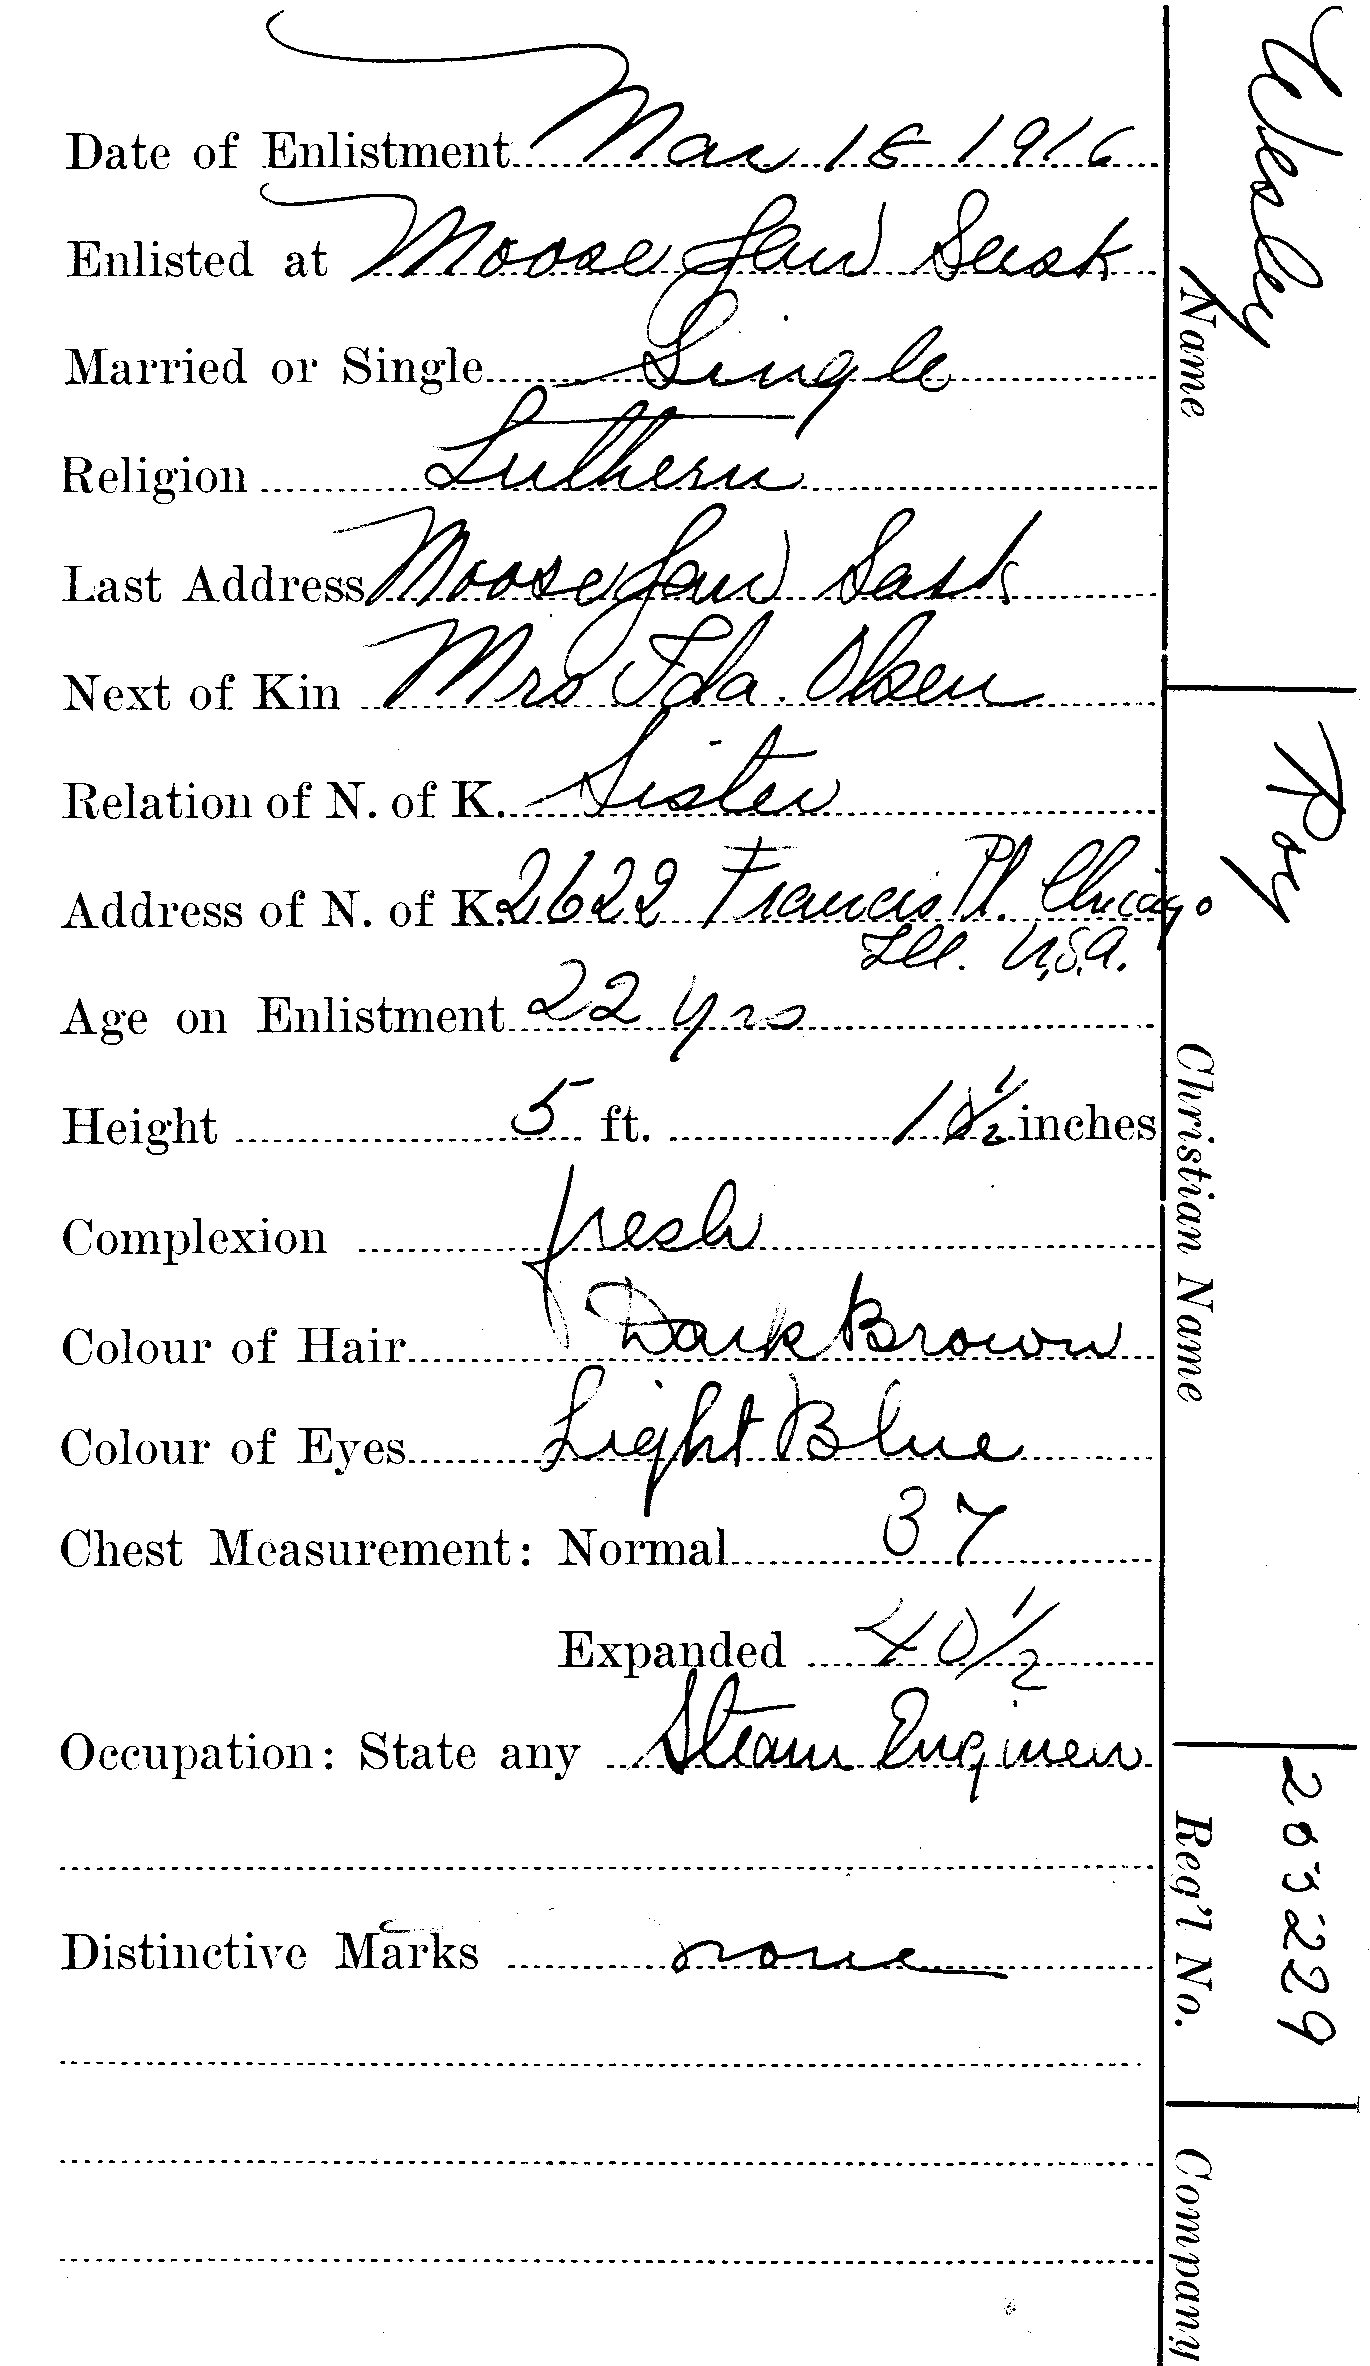 Date of Enlistment Mar 18 1916
Enlisted at Moose Jaw Sask
Married or Single Single
Religion Luthern
Last Address Moose Jaw Sask
Next of Kin Mrs Ida Olsen
Relation of N. of K. Sister
Address of N. of K. 2622 Francis Pl. Chicago
Ill. U.S.A.
Age on Enlistment 22 yrs
Height 5 ft. 1 1/2 inches
Complexion fresh
Colour of Hair Dark Brown
Colour of Eyes Light Blue
Chest Measurement: Normal 37
Expanded 40 1/2
Occupation: State any Steam Engineer
Distinctive Marks none
Wesley
Name
Roy
Christian Name
203229
Reg'l No.
Company